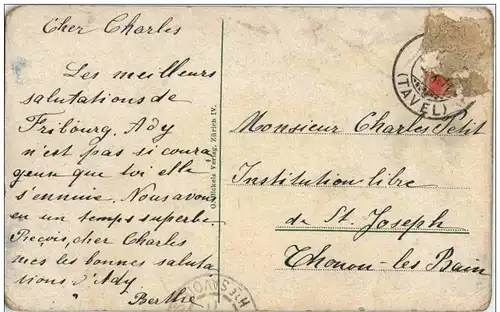 Cher Charles
Les meilleurs
salutations de
Fribourg. Ady
n'est pas si coura
geuse que toi elle
s'ennuie. Nous avons
eu un temps superbe.
Reçois, cher Charles
mes les bonnes saluta
tions d'Ady
Berthe
Verlag, Zürich IV.
(TAVEL)
Monsieur Charles Petit
Institution libre
de St. Joseph
Thonon-les Bain
HTE SAVOIE